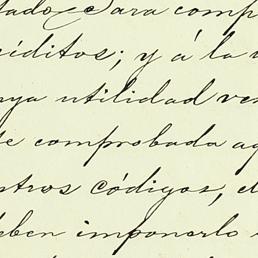 tado para comp
réditos; y á la v
uya utilidad ven
se comprobada aq
ntros códigos, el
deben imponerlo